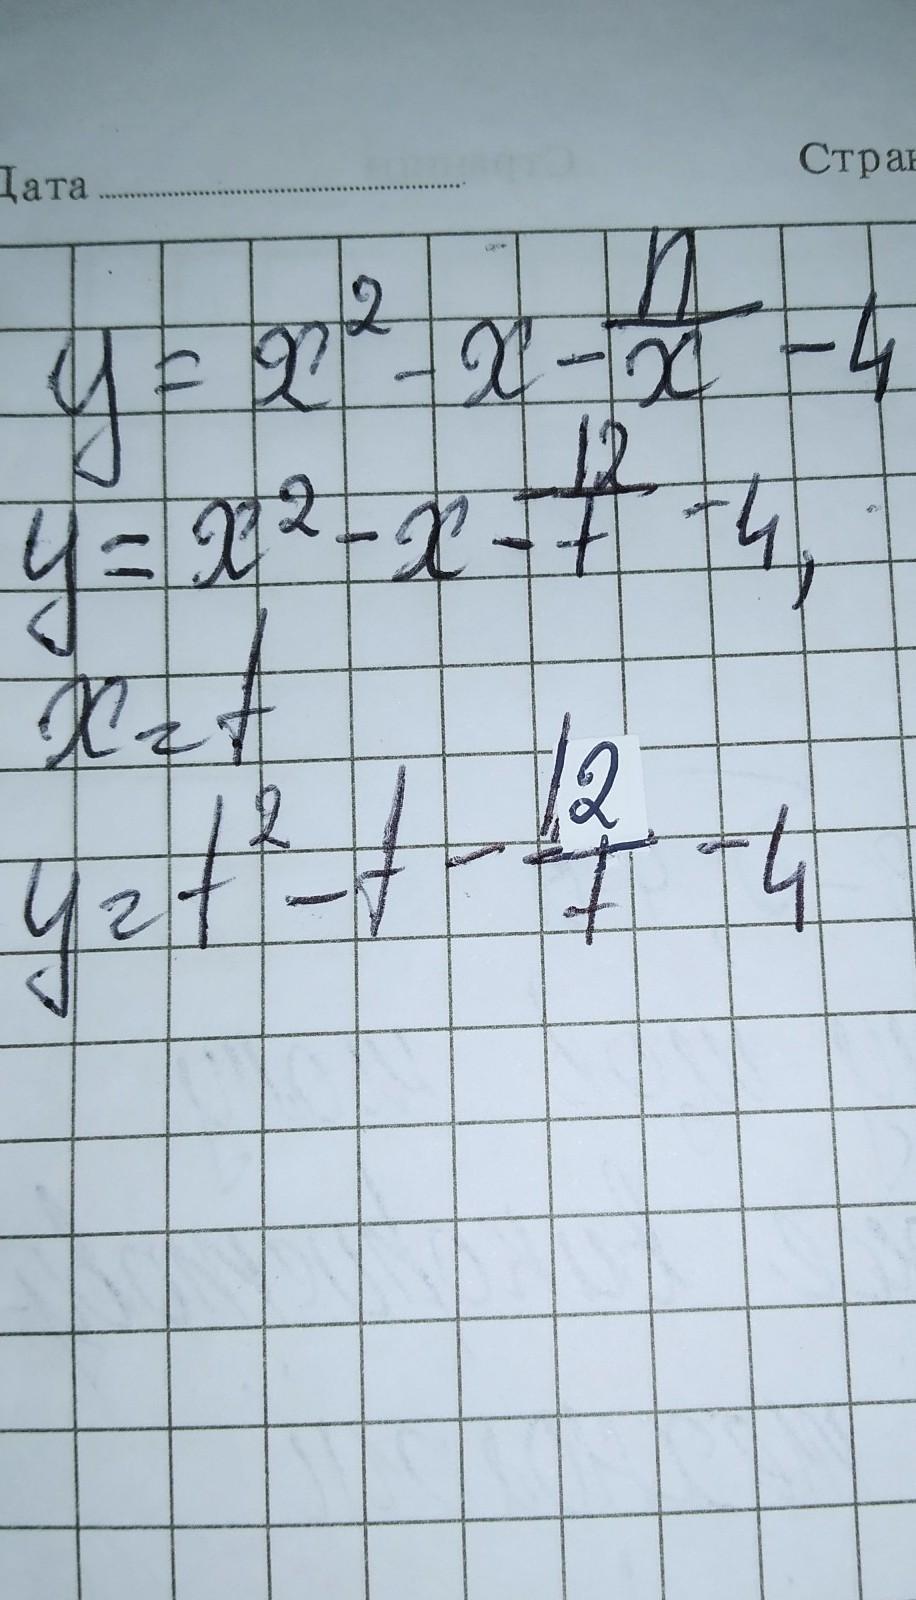 Дата Стран
y = x² - x - n/x - 4
y = x² - x - 12/t - 4,
x = t
y = t² - t - 12/t - 4